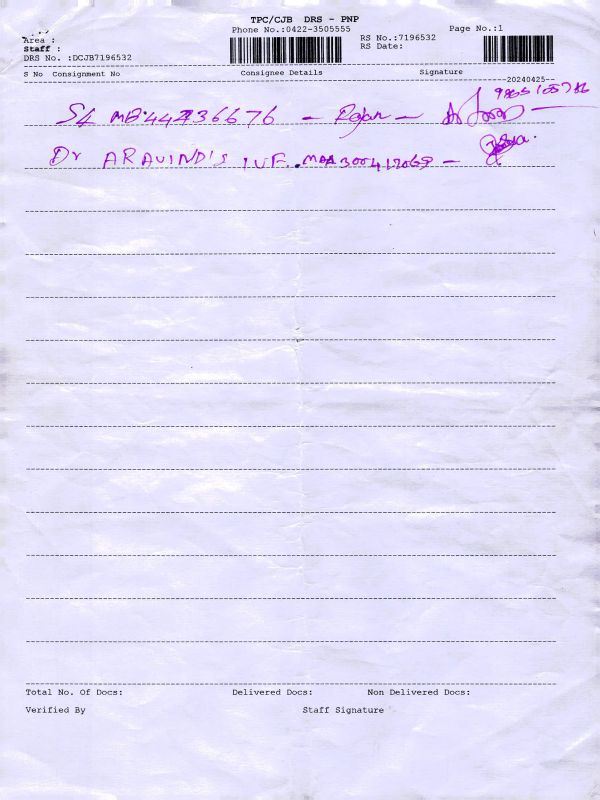 TPC/CJB DRS - PNP
Area :
Phone No.:0422-3505555
Page No.:1
Staff :
RS No.:7196532
DRS No. :DCJB7196532
RS Date:
S No Consignment No Consignee Details Signature
20240425
Rajan
Dr ARAVIND'S IVF. MAA300417069 -
Total No. Of Docs: Delivered Docs: Non Delivered Docs:
Verified By Staff Signature